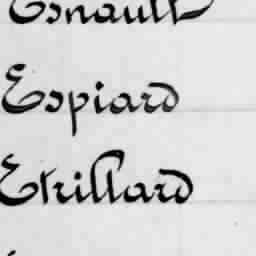 Esnault
Espiard
Etrillard